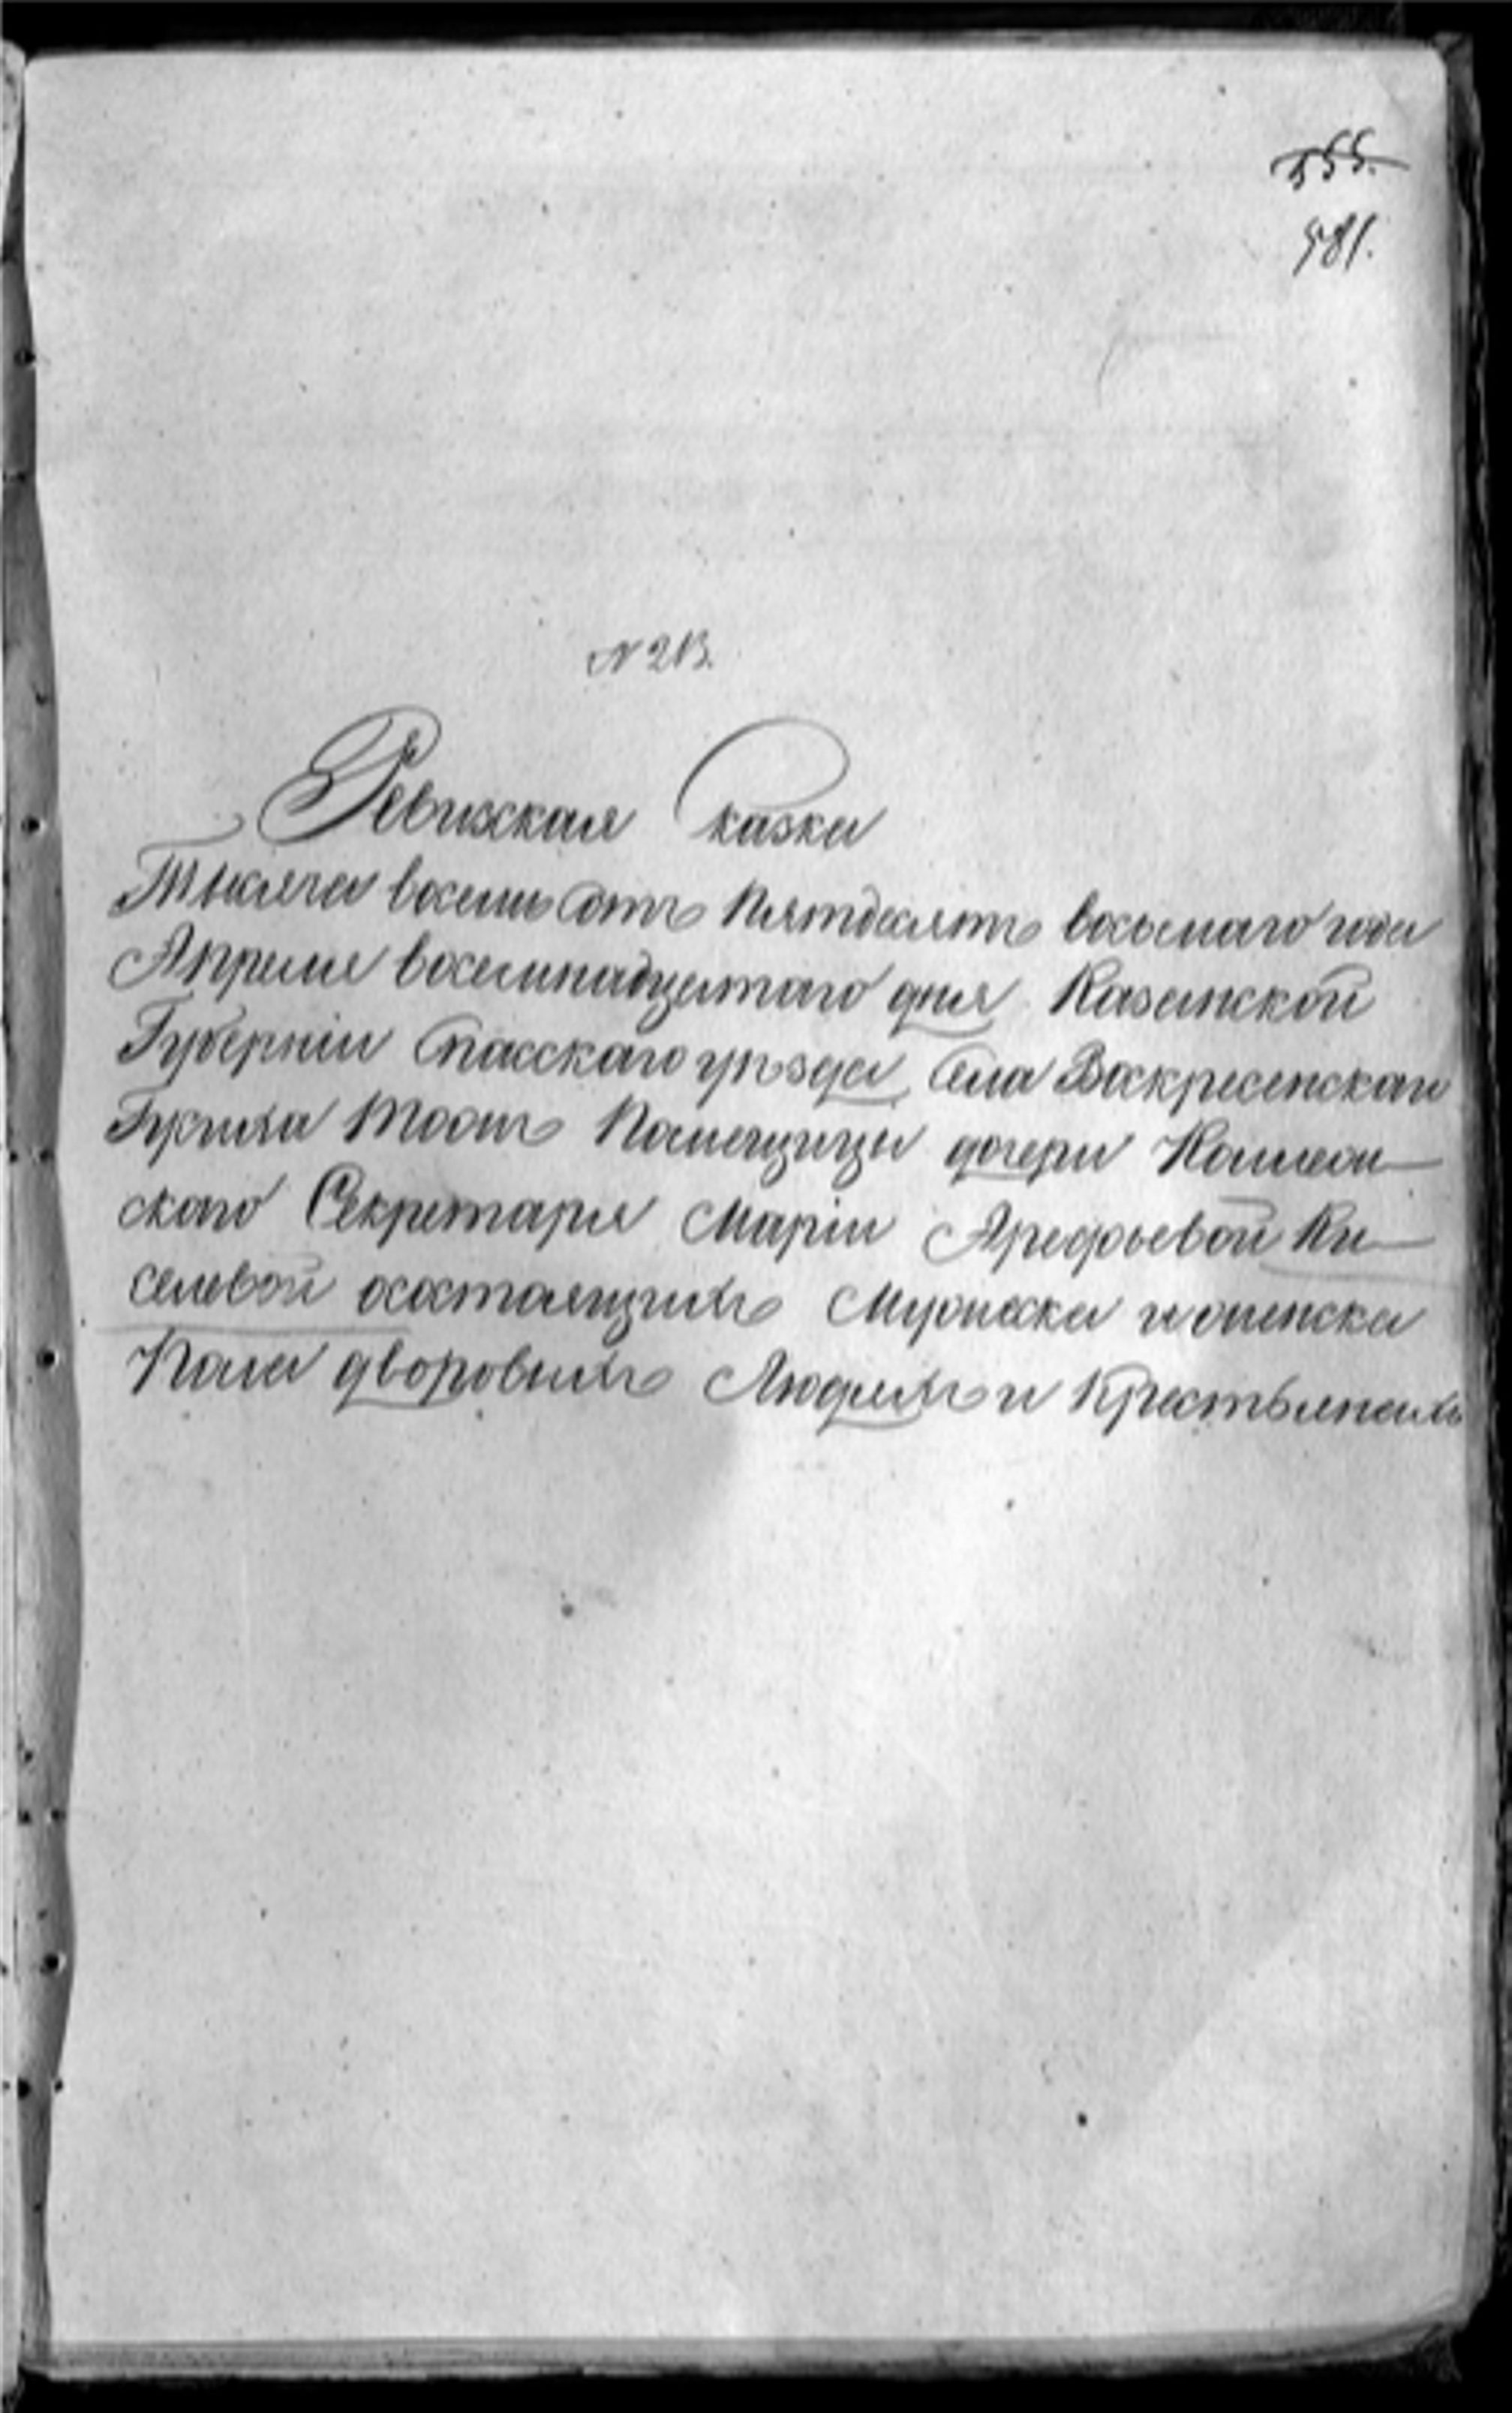 555.
581.
N 213.
Ревизская Сказка
Тысяча восемь сотъ Пятдесятъ восьмаго года
Апреля восемнадцатаго дня Казанской
Губерніи Спасскаго уѣзда Села Воскресенскаго
тожъ Помещицы дочери Коллеж-
скаго Секретаря Маріи Арефьевой Ки-
селевой осостоящихъ Мужеска и женска
Пола дворовыхъ Людяхъ и Крестьянахъ